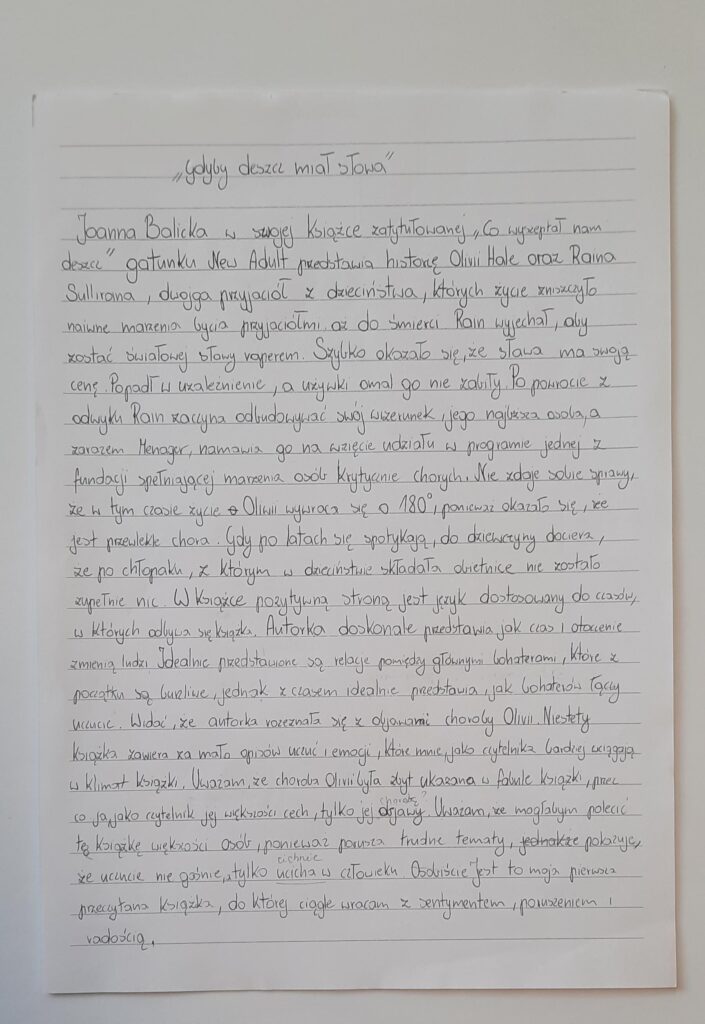 „Gdyby deszcz miał słowa”
Joanna Balicka w swojej książce zatytułowanej „Co wyszeptał nam
deszcz” gatunku New Adult przedstawia historię Olivii Hale oraz Raina
Sullivana, dwojga przyjaciół z dzieciństwa, których życie zniszczyło
naiwne marzenia bycia przyjaciółmi aż do śmierci Rain wyjechał, aby
zostać światowej sławy raperem. Szybko okazało się, że sława ma swoją
cenę. Popadł w uzależnienie, a używki omal go nie zabiły. Po powrocie z
odwyku Rain zaczyna odbudowywać swój wizerunek, jego najbliższa osoba, a
zarazem Menager, namawia go na wzięcie udziału w programie jednej z
fundacji spełniającej marzenia osób krytycznie chorych. Nie zdaje sobie sprawy,
że w tym czasie życie Oliwii wywraca się o 180°, ponieważ okazało się, że
jest przewlekle chora. Gdy po latach się spotykają, do dziewczyny dociera,
że po chłopaku, z którym w dzieciństwie składała obietnice nie zostało
zupełnie nic. W książce pozytywną stroną jest język dostosowany do czasów,
w których odbywa się książka. Autorka doskonale przedstawia jak czas i otoczenie
zmienią ludzi. Idealnie przedstawione są relacje pomiędzy głównymi bohaterami, które z
początku są burzliwe, jednak z czasem idealnie przedstawia, jak bohaterów łączy
uczucie. Widać, że autorka rozeznała się z objawami choroby Olivii. Niestety
książka zawiera za mało opisów uczuć i emocji, które mnie, jako czytelnika bardziej wciągają
w klimat książki. Uważam, że choroba Olivii była zbyt ukazana w fabule książki, przez
co ja, jako czytelnik jej większości cech, tylko jej objawy. chorobę? Uważam, że mogłabym polecić
tę książkę większości osób, ponieważ porusza trudne tematy, jednakże pokazuje,
że uczucie nie gaśnie, tylko ucicha cichnie w człowieku. Osobiście jest to moja pierwsza
przeczytana książka, do której ciągle wracam z sentymentem, poruszeniem i
radością.